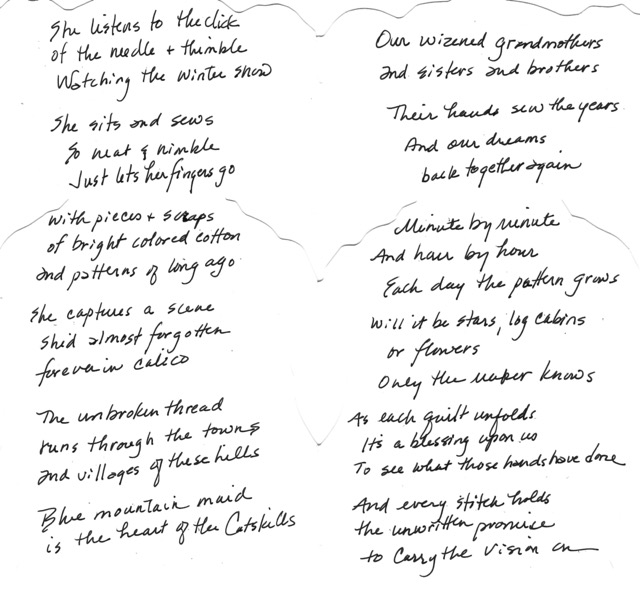 She listens to the click
of the needle + thimble
Watching the winter snow
She sits and sews
So neat & nimble
Just lets her fingers go
with pieces + scraps
of bright colored cotton
and patterns of long ago
She captures a scene
she'd almost forgotten
forever in calico
The unbroken thread
runs through the towns
and villages of these hills
Blue mountain maid
is the heart of the Catskills
Our wizened grandmothers
and sisters and brothers
Their hands sew the years
And our dreams
back together again
Minute by minute
And hour by hour
Each day the pattern grows
Will it be stars, log cabins
or flowers
Only the maker knows
As each quilt unfolds
It's a blessing upon us
To see what those hands have done
And every stitch holds
the unwritten promise
to carry the vision on